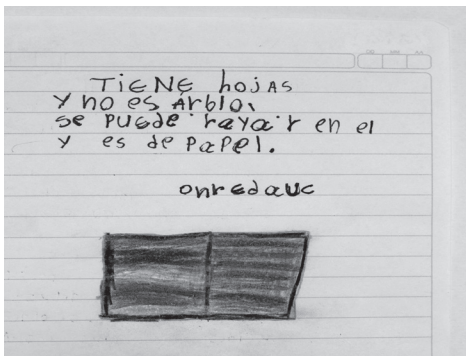 TiENE hojAs
y no es Árblo,
se puede rayar en el
y es de papel.
onredauc